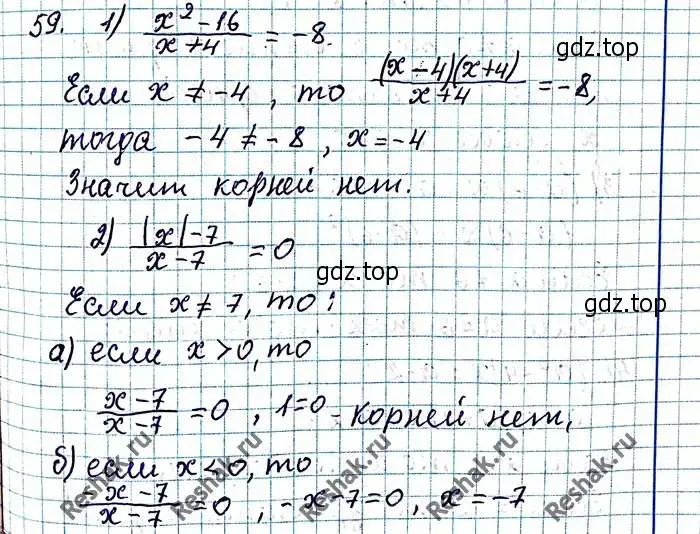 59. 1) (x² - 16)/(x + 4) = -8.
gdz.top
Если x ≠ -4, то ((x - 4)(x + 4))/(x + 4) = -8,
тогда -4 ≠ -8, x = -4
Значит корней нет.
2) (|x| - 7)/(x - 7) = 0
gdz.top
gdz.top
Если x ≠ 7, то:
а) если x > 0, то
(x - 7)/(x - 7) = 0, 1 = 0 - корней нет,
б) если x < 0, то
(-x - 7)/(x - 7) = 0, -x - 7 = 0, x = -7
Reshak.ru
Reshak.ru
Reshak.ru
Reshak.ru